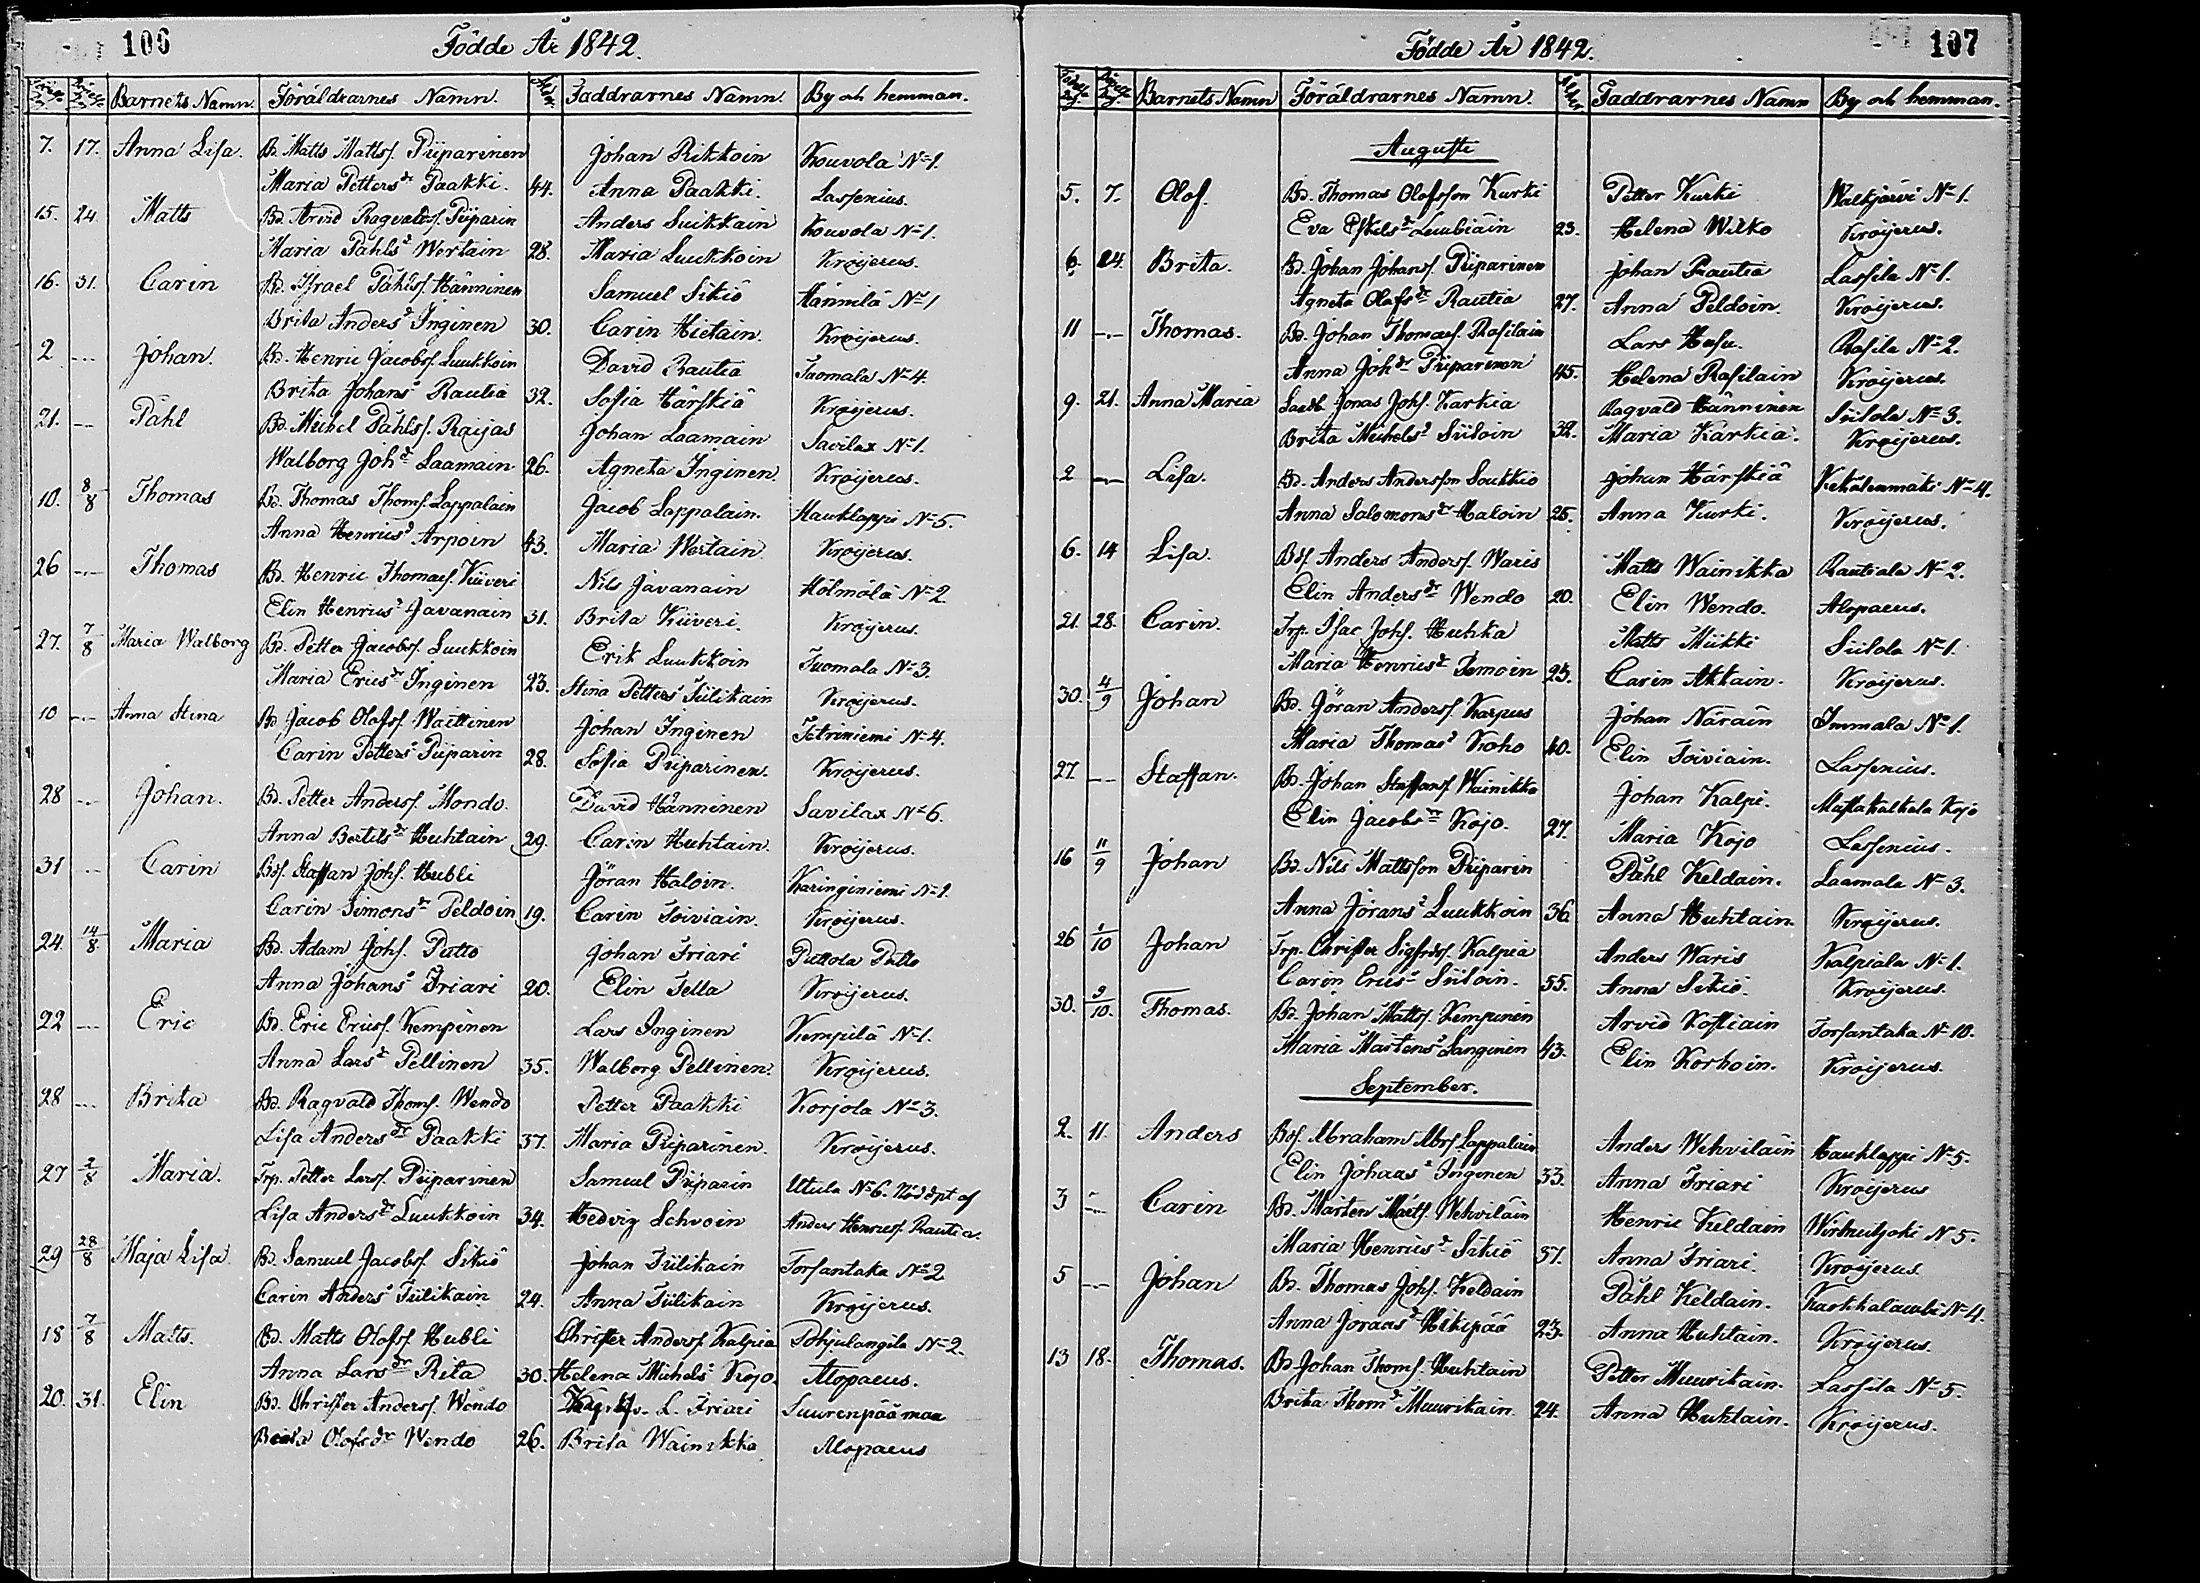 106
Födde År 1842.
Barnets Namn. Föräldrarnes Namn. Faddrarnes Namn. By och hemman.
7. 17. Anna Lisa. Bd. Matts Mattsf. Piiparinen Johan Rikkoin Kouvola No 1.
Maria Pettersdr Paakki. 44. Anna Paakki. Lassenius.
15. 24. Matts Bd. Arvid Ragvaldsf. Piiparin Anders Suikkain Kouvola No 1.
Maria Påhlsdr Wertain 28. Maria Luukkoin Kröijerus.
16. 31. Carin Bd. Israel Påhlsf. Hänninen Samuel Sikiö Hännilä No 1
Brita Andersdr Inginen 30. Carin Hietain. Kröijerus.
2 -- Johan. Bd. Henric Jacobsf. Luukkoin David Rautia Tuomala No 4.
Brita Johansdr Rautia 32. Sofia Härskiä Kröijerus.
21. -- Påhl Bd. Michel Påhlsf. Raijas Johan Laamain Savilax No 1.
Walborg Johdr Laamain 26. Agneta Inginen. Kröijerus.
10. 8/8 Thomas Bd. Thomas Thomsf. Lappalain Jacob Lappalain. Hauklappi No 5.
Anna Henricsdr Arpoin 43. Maria Wertain Kröijerus.
26 -- Thomas Bd. Henric Thomasf. Kiiveri Nils Javanain Hölmölä No 2.
Elin Henricsdr Javanain 31. Brita Kiiveri. Kröijerus.
27. 7/8 Maria Walborg Bd. Petter Jacobsf. Luukkoin Erik Luukkoin Tuomala No 3.
Maria Ericsdr Inginen 23. Stina Pettersdr Tiilikain Kröijerus.
10 -- Anna Stina Bd. Jacob Olofsf. Waittinen Johan Inginen Tetriniemi No 4.
Carin Pettersdr Piiparin 28. Sofia Piiparinen. Kröijerus.
28 -- Johan. Bd. Petter Andersf. Mondo. David Hänninen Savilax No 6.
Anna Bertilsdr Huhtain 29. Carin Huhtain. Kröijerus.
31 -- Carin Bdsf. Staffan Johsf. Hubli Jöran Haloin. Karinginiemi No 1.
Carin Simonsdr Peldoin 19. Carin Toiviain. Kröijerus.
24. 14/8 Maria Bd. Adam Johsf. Putto Johan Friari Puttola Putto
Anna Johansdr Friari 20. Elin Tella Kröijerus.
22 -- Eric Bd. Eric Ericsf. Kempinen Lars Inginen Kempilä No 1.
Anna Larsdr Pellinen 35. Walborg Pellinen. Kröijerus.
28 -- Brita Bd. Ragvald Thomsf. Wendo Petter Paakki Korjola No 3.
Lisa Andersdr Paakki 37. Maria Piiparinen. Kröijerus.
27 2/8 Maria. Trp. Petter Larsf. Piiparinen Samuel Piiparin Utula No 6. Nöddpt af
Lisa Andersdr Luukkoin 34. Hedvig Schvoin Anders Henricsf. Rautia.
29 28/8 Maja Lisa Bd. Samuel Jacobsf. Sikiö Johan Tiilikain Torsantaka No 2
Carin Andersdr Tiilikain 24. Anna Tiilikain Kröijerus.
18 7/8 Matts. Bd. Matts Olofsf. Hubli Christer Andersf. Kalpia Pohjalangila No 2.
Anna Larsdr Rita 30. Helena Michelsdr Kojo. Alopaeus.
20. 31. Elin Bd. Christer Andersf. Wendo L. Friari Suurenpäämaa
Brita Olofsdr Wendo 26. Brita Wainikka Alopaeus

107
Födde År 1842.
Barnets Namn Föräldrarnes Namn. Ålder Faddrarnes Namn By och hemman.
Augusti
5. 7. Olof. Bd. Thomas Olofsson Kurki Petter Kurki Walkjärvi No 1.
Eva Eskelsdr Leubiain 23. Helena Wilko Kröijerus.
6. 24. Brita. Bd. Johan Johansf. Piiparinen Johan Rautia Lassila No 1.
Agneta Olofsdr Rautia 27. Anna Peldoin. Kröijerus.
11 -- Thomas. Bd. Johan Thomasf. Rasilain Lars Husu. Rasila No 2.
Anna Johdr Piiparinen 45. Helena Rasilain Kröijerus.
9. 21. Anna Maria Jonas Johsf. Karkia Ragvald Hänninen Siitola No 3.
Brita Michelsdr Siitoin 32. Maria Karkia. Kröijerus.
2 -- Lisa. Bd. Anders Andersson Soukkio Johan Härskiä Kekälenmäki No 4.
Anna Salomonsdr Haloin 25. Anna Kurki. Kröijerus.
6. 14 Lisa. Bdsf. Anders Andersf. Waris Matts Wainikka Rautiala No 2.
Elin Andersdr Wendo 20. Elin Wendo. Alopaeus.
21. 28. Carin. Trp. Isac Johsf. Huhka Matts Miikki Siitola No 1.
Maria Henricsdr Temoin 23. Carin Aktain. Kröijerus.
30. 4/9 Johan Bd. Jöran Andersf. Karpus Johan Näräin Immala No 1.
Maria Thomasdr Koho 40. Elin Toiviain. Lassenius.
27 -- Staffan. Bd. Johan Staffansf. Wainikka Johan Kalpi. Kojo
Elin Jacobsdr Kojo. 27. Maria Kojo Lassenius.
16 11/9 Johan Bd. Nils Mattsson Piiparin Påhl Keldain. Laamala No 3.
Anna Joransdr Luukkoin 36. Anna Huhtain. Kröijerus.
26 1/10 Johan Trp. Christer Sigfrdsf. Kalpia Anders Waris Kalpiala No 1.
Carin Ericsdr Siitoin. 35. Anna Sikiö. Kröijerus.
30. 9/10. Thomas. Bd. Johan Mattsf. Kempinen Arvid Kostiain Torsantaka No 10.
Maria Mårtensdr Langinen 43. Elin Korhoin. Kröijerus.
September.
2. 11. Anders Bdsf. Abraham Abrsf. Lappalain Anders Wehviläin Hauklappi No 5.
Elin Johansdr Inginen 33. Anna Friari Kröijerus
3 -- Carin Bd. Mårten Mårtsf. Wehviläin Henric Keldain Wirmutjoki No 5.
Maria Henricsdr Sikiö 37. Anna Friari. Kröijerus.
5 -- Johan Bd. Thomas Johsf. Keldain Påhl Keldain. Karkkalambi No 4.
Anna Joransdr Hikipää 23. Anna Huhtain. Kröijerus.
13 18. Thomas. Bd. Johan Thomsf. Huhtain Petter Muurikain. Lassila No 5.
Brita Thomdr Muurikain 24. Anna Huhtain. Kröijerus.